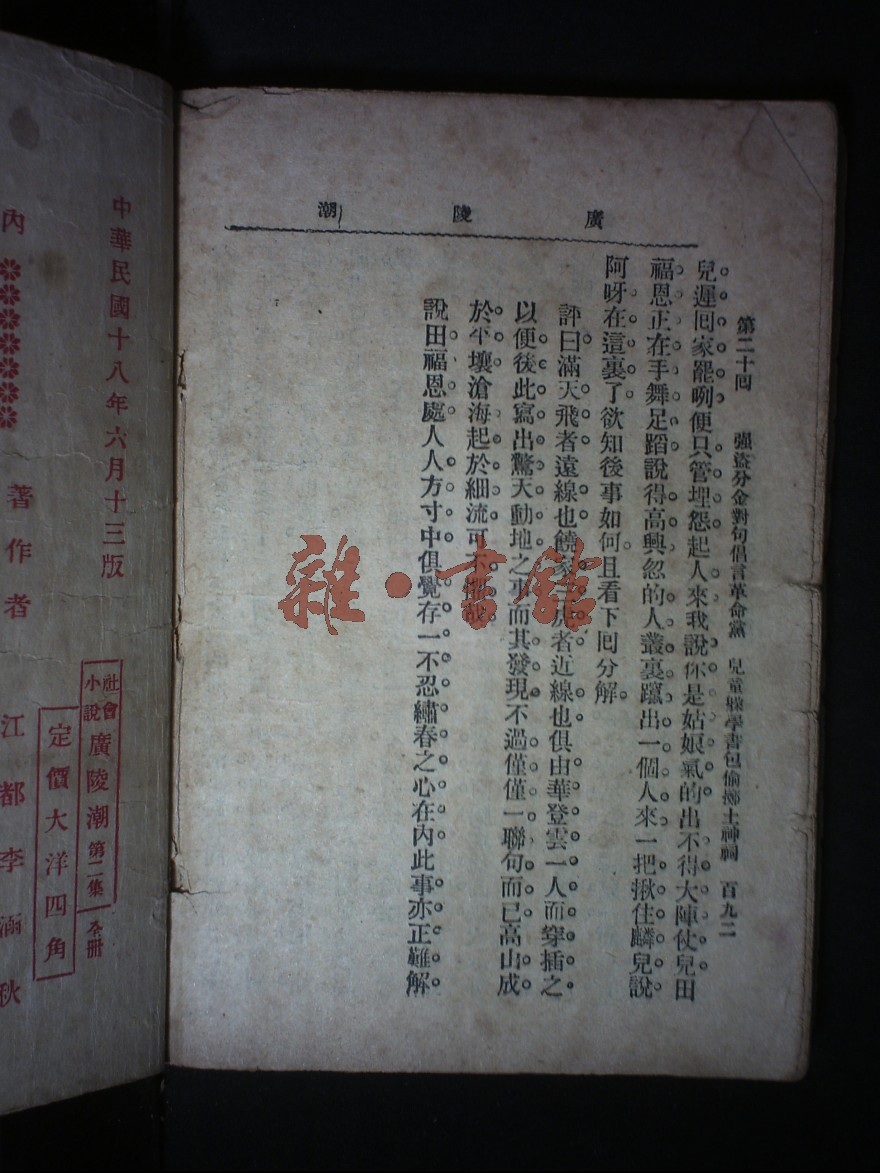 廣陵潮
第二十回　强盜分金對句倡言革命黨　兒童躲學書包偷擲土神祠　百九二
兒遲回家罷咧便只管埋怨起人來我說你是姑娘氣的出不得大陣仗兒田
福恩正在手舞足蹈說得高興忽的人叢裏躥出一個人來一把揪住麟兒說
阿呀在這裏了欲知後事如何且看下回分解
評曰滿天飛者遠線也饒 者近線也俱由華登雲一人而穿插之
以便後此寫出驚天動地之事而其發現不過僅僅一聯句而已高山成
於平壤滄海起於細流可不
說田福恩處人人方寸中俱覺存一不忍繡春之心在內此事亦正難解
雜·書館
中華民國十八年六月十三版
社會小說 廣陵潮 第二集 全冊
定價大洋四角
內
著作者　江都李涵秋